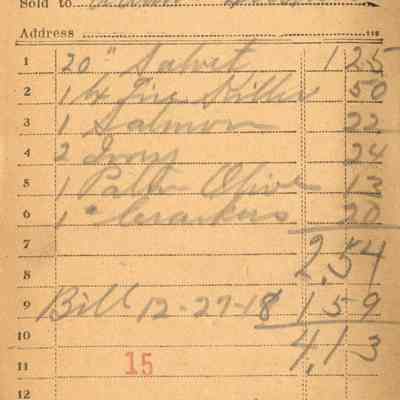 Sold to
Address
1 20 " Salvet 1 25
2 1 50
3 1 Salmon 22
4 2 Ivory 24
5 1 Palm Olive 13
6 1 " Crackers 20
7 2.54
8
9 Bill 12-27-18 1 59
10 4.13
11 15
12